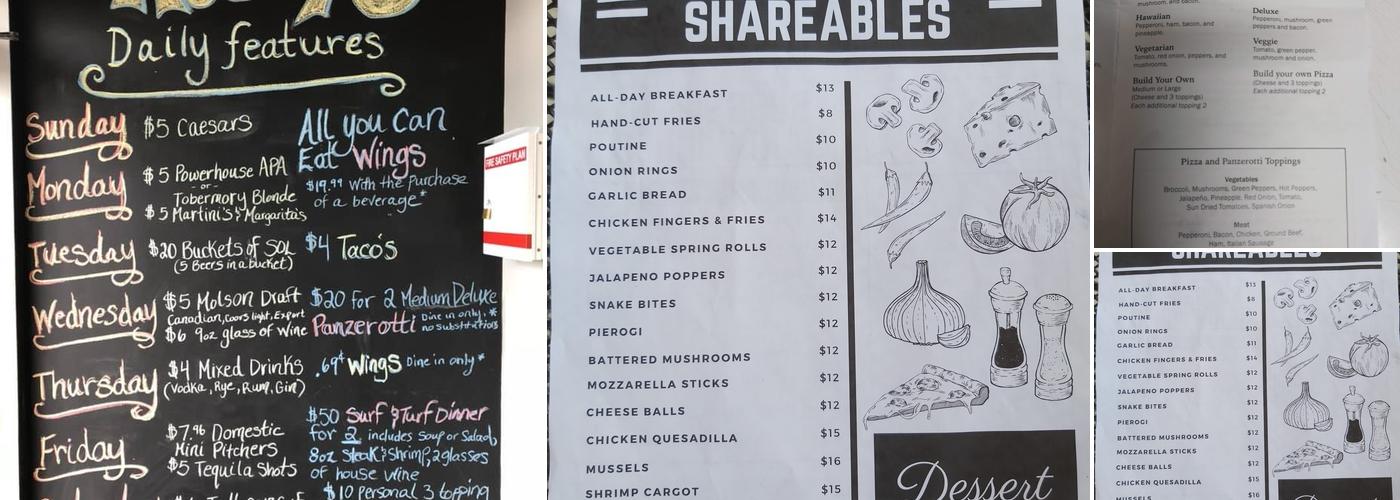 Daily features
Sunday
$5 Caesars
All you can
Eat Wings
$19.99 with the purchase
of a beverage*
Monday
$5 Powerhouse APA
-or-
Tobermory Blonde
$5 Martini's & Margarita's
Tuesday
$20 Buckets of SOL
(5 Beers in a bucket)
$4 Taco's
Wednesday
$5 Molson Draft
Canadian, Coors light, Export
$6 9oz glass of Wine
$20 for 2 Medium Deluxe
Panzerotti Dine in only. *
no substitutions
Thursday
$4 Mixed Drinks
(Vodka, Rye, Rum, Gin)
.69¢ Wings Dine in only*
Friday
$7.96 Domestic
Mini Pitchers
$5 Tequila Shots
$50 Surf & Turf Dinner
for 2 includes Soup or Salad,
8oz Steak & Shrimp, 2 glasses
of house wine
$10 personal 3 topping
FIRE SAFETY PLAN
SHAREABLES
ALL-DAY BREAKFAST $13
HAND-CUT FRIES $8
POUTINE $10
ONION RINGS $10
GARLIC BREAD $11
CHICKEN FINGERS & FRIES $14
VEGETABLE SPRING ROLLS $12
JALAPENO POPPERS $12
SNAKE BITES $12
PIEROGI $12
BATTERED MUSHROOMS $12
MOZZARELLA STICKS $12
CHEESE BALLS $12
CHICKEN QUESADILLA $15
MUSSELS $16
SHRIMP CARGOT $15
Dessert
mushroom, and bacon.
Hawaiian
Pepperoni, ham, bacon, and
pineapple.
Vegetarian
Tomato, red onion, peppers, and
mushrooms.
Build Your Own
Medium or Large
(Cheese and 3 toppings)
Each additional topping 2
Deluxe
Pepperoni, mushroom, green
peppers and bacon.
Veggie
Tomato, green pepper,
mushroom and onion.
Build your own Pizza
(Cheese and 3 toppings)
Each additional topping 2
Pizza and Panzerotti Toppings
Vegetables
Broccoli, Mushrooms, Green Peppers, Hot Peppers,
Jalapeño, Pineapple, Red Onion, Tomato,
Sun Dried Tomatoes, Spanish Onion
Meat
Pepperoni, Bacon, Chicken, Ground Beef,
Ham, Italian Sausage
SHAREABLES
ALL-DAY BREAKFAST $13
HAND-CUT FRIES $8
POUTINE $10
ONION RINGS $10
GARLIC BREAD $11
CHICKEN FINGERS & FRIES $14
VEGETABLE SPRING ROLLS $12
JALAPENO POPPERS $12
SNAKE BITES $12
PIEROGI $12
BATTERED MUSHROOMS $12
MOZZARELLA STICKS $12
CHEESE BALLS $12
CHICKEN QUESADILLA $15
MUSSELS $16
Dessert